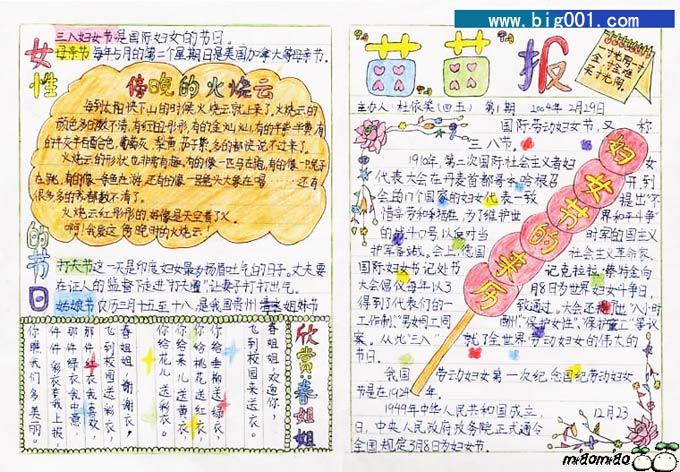 www.big001.com
女性的节日
三八妇女节是国际妇女的节日。
母亲节 每年5月的第二个星期日是美国加拿大等母亲节。
傍晚的火烧云
每到太阳快下山的时候,火烧云就上来了,火烧云的
颜色多的数不清,有红彤彤的,有的金灿灿,有的半紫半黄,有
的半灰半百合色,葡萄灰,梨黄,茄子紫,多的都说不过来了。
火烧云的形状也非常有趣,有的像一匹马在跑,有的像一只兔子
在跳,有的像一条鱼在游,还有的像一只
很多多的,数都数不清了。
火烧云红彤彤的,好像是天空着了火。
啊!我爱这傍晚时的火烧云!
打夫节 这一天是印度妇女最为扬眉吐气的日子。丈夫要
在证人的监督下走进"打夫圈"让妻子打打出气。
姑娘节 农历三月十五至十八,是我国贵州 姐妹节
欣赏:春姐姐
春姐姐,欢迎你,
飞到校园来送衣。
你给垂柳送绿衣,
你给桃花送红衣,
你给菜儿送黄衣,
你给花儿送彩衣。
春姐姐,谢谢衣,
飞到校园送彩衣。
那件红衣我喜欢,
那件绿衣我中意,
一件彩衣穿我上报,
你瞧我们多美丽。
苗苗报
一寸光阴一寸
金,寸金难
买寸光阴。
主办人:杜依柴(四五) 第1期 2004年2月29日
妇女节的来历
国际劳动妇女节,又称
三八节。
1910年,第二次国际社会主义者妇女
代表大会在丹麦首都哥本哈根召开,到
会的17个国家的妇女代表一致提出"不
惜辛劳和牺牲,为了维护世界和斗争"
的战斗口号以反对当时军的国主义
护军备战。会上,德国社会主义革命家、
国际妇女书记处书记克拉拉·蔡特金向
大会倡仪每年以3月8日为世界妇女斗争日,
得到了代表们的一致通过。大会还提出"八小时
工作制""男女同工同酬","保护女性","保护童工"等议
案。从此"三八"就了全世界劳动妇女的伟大的
节日。
我国劳动妇女第一次纪念国纪劳动妇女节
是在1924年。
1949年中华人民共和国成立,12月23
日,中央人民政府政务院正式通令
全国规定3月8日为妇女节。
miaomiao